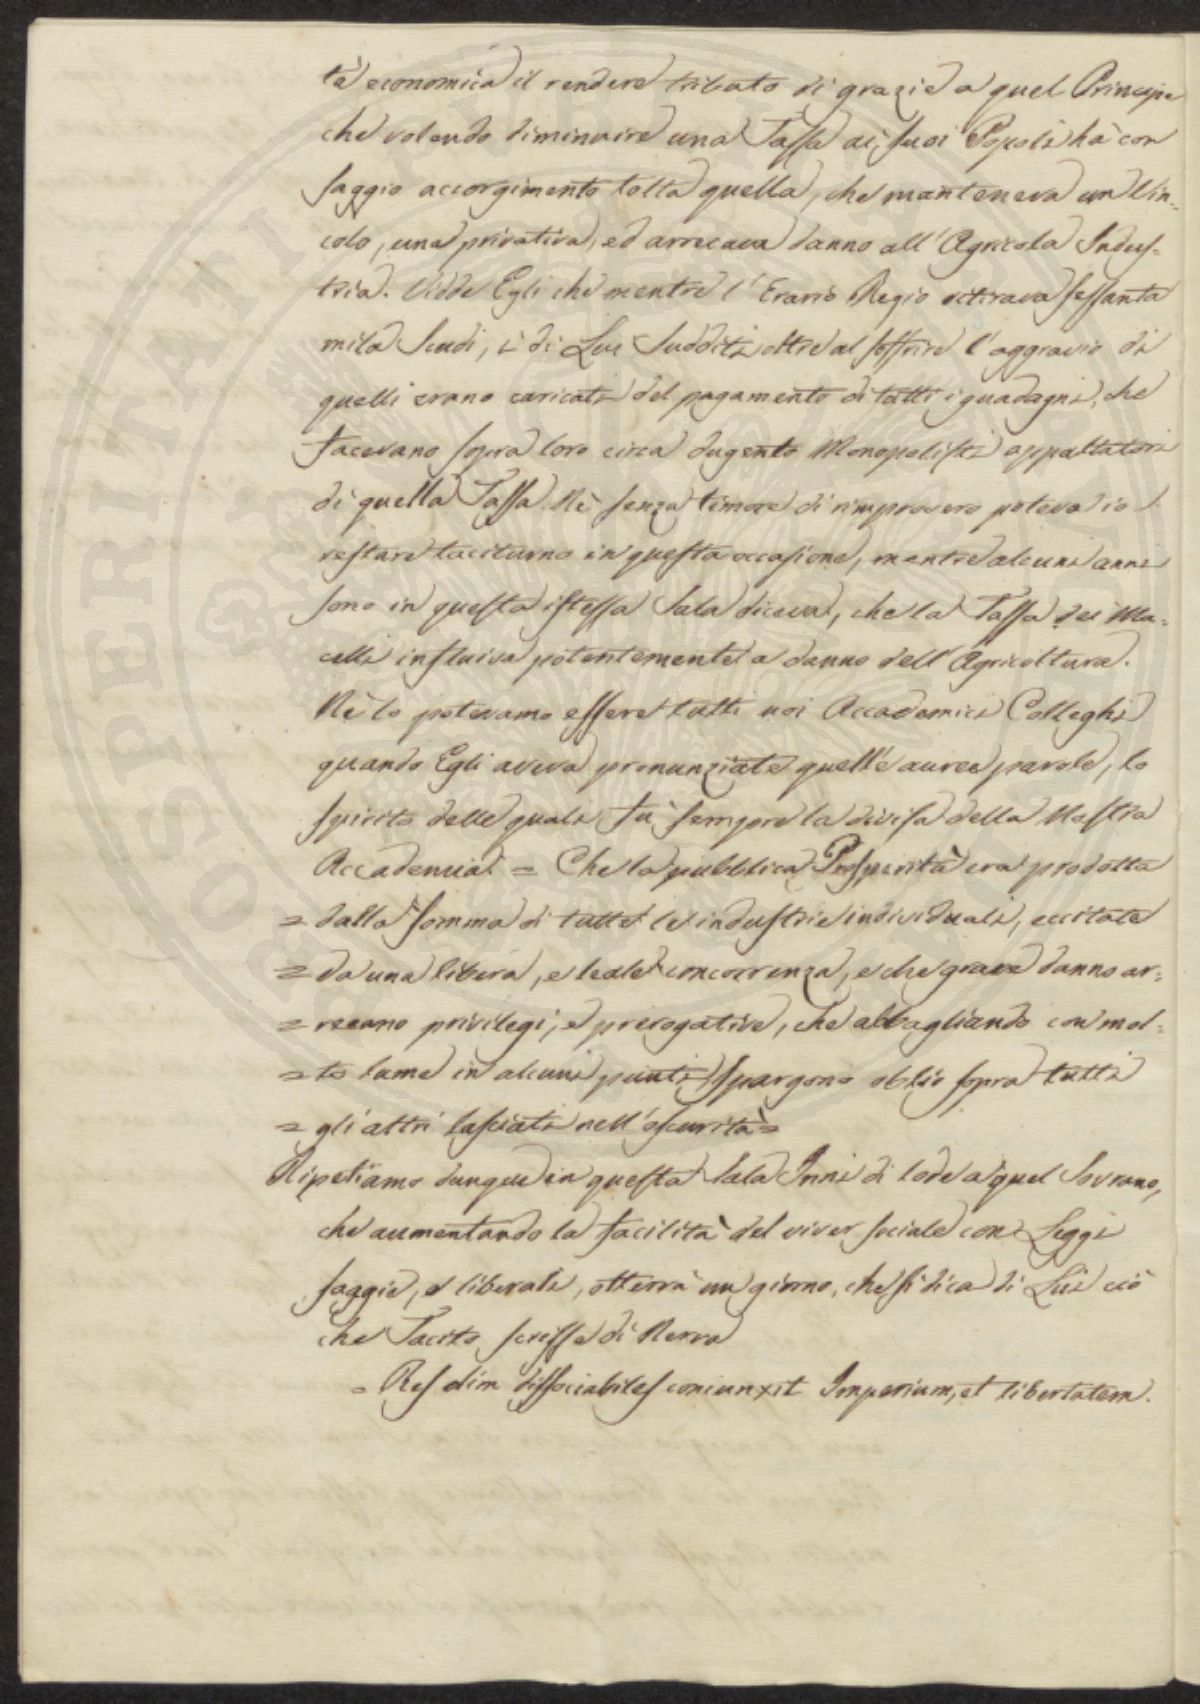 tà economica il rendere tributo di grazie a quel Principe
che volendo diminuire una Tassa ai suoi Popoli ha con
saggio accorgimento tolta quella, che manteneva un Vin-
colo, una privativa, ed arrecava danno all'Agricola Indus-
tria. Vidde Egli che mentre l'Erario Regio ritirava sessanta
mila Scudi, i di Lui Sudditi oltre al soffrire l'aggravio di
quelli erano caricati del pagamento di tutti i guadagni, che
facevano sopra loro circa dugento Monopolisti appaltatori
di quella Tassa. Nè senza timore di rimprovero poteva io
restare taciturno in questa occasione, mentre alcuni anni
sono in questa istessa Sala diceva, che la Tassa dei Ma=
celli influiva potentemente a danno dell'Agricoltura.
Nè lo potevamo essere tutti noi Accademici Colleghi
quando Egli aveva pronunziate quelle auree parole, lo
spirito delle quali fù sempre la divisa della Nostra
Accademia = Che la pubblica Prosperità era prodotta
= dalla somma di tutte le industrie individuali, eccitate
= da una libera, e leale concorrenza, e che grave danno ar=
= recano privilegi, e prerogative, che abbagliando con mol=
= to lume in alcuni punti spargono oblio sopra tutti
= gli altri lasciati nell'oscurità =
Ripetiamo dunque in questa Sala Inni di lode a quel Sovrano,
che aumentando la facilità del viver sociale con Leggi
saggie, e liberali, otterrà un giorno, che si dica di Lui ciò
che Tacito scrisse di Nerva
= Res olim dissociabiles coniunxit Imperium, et libertatem.